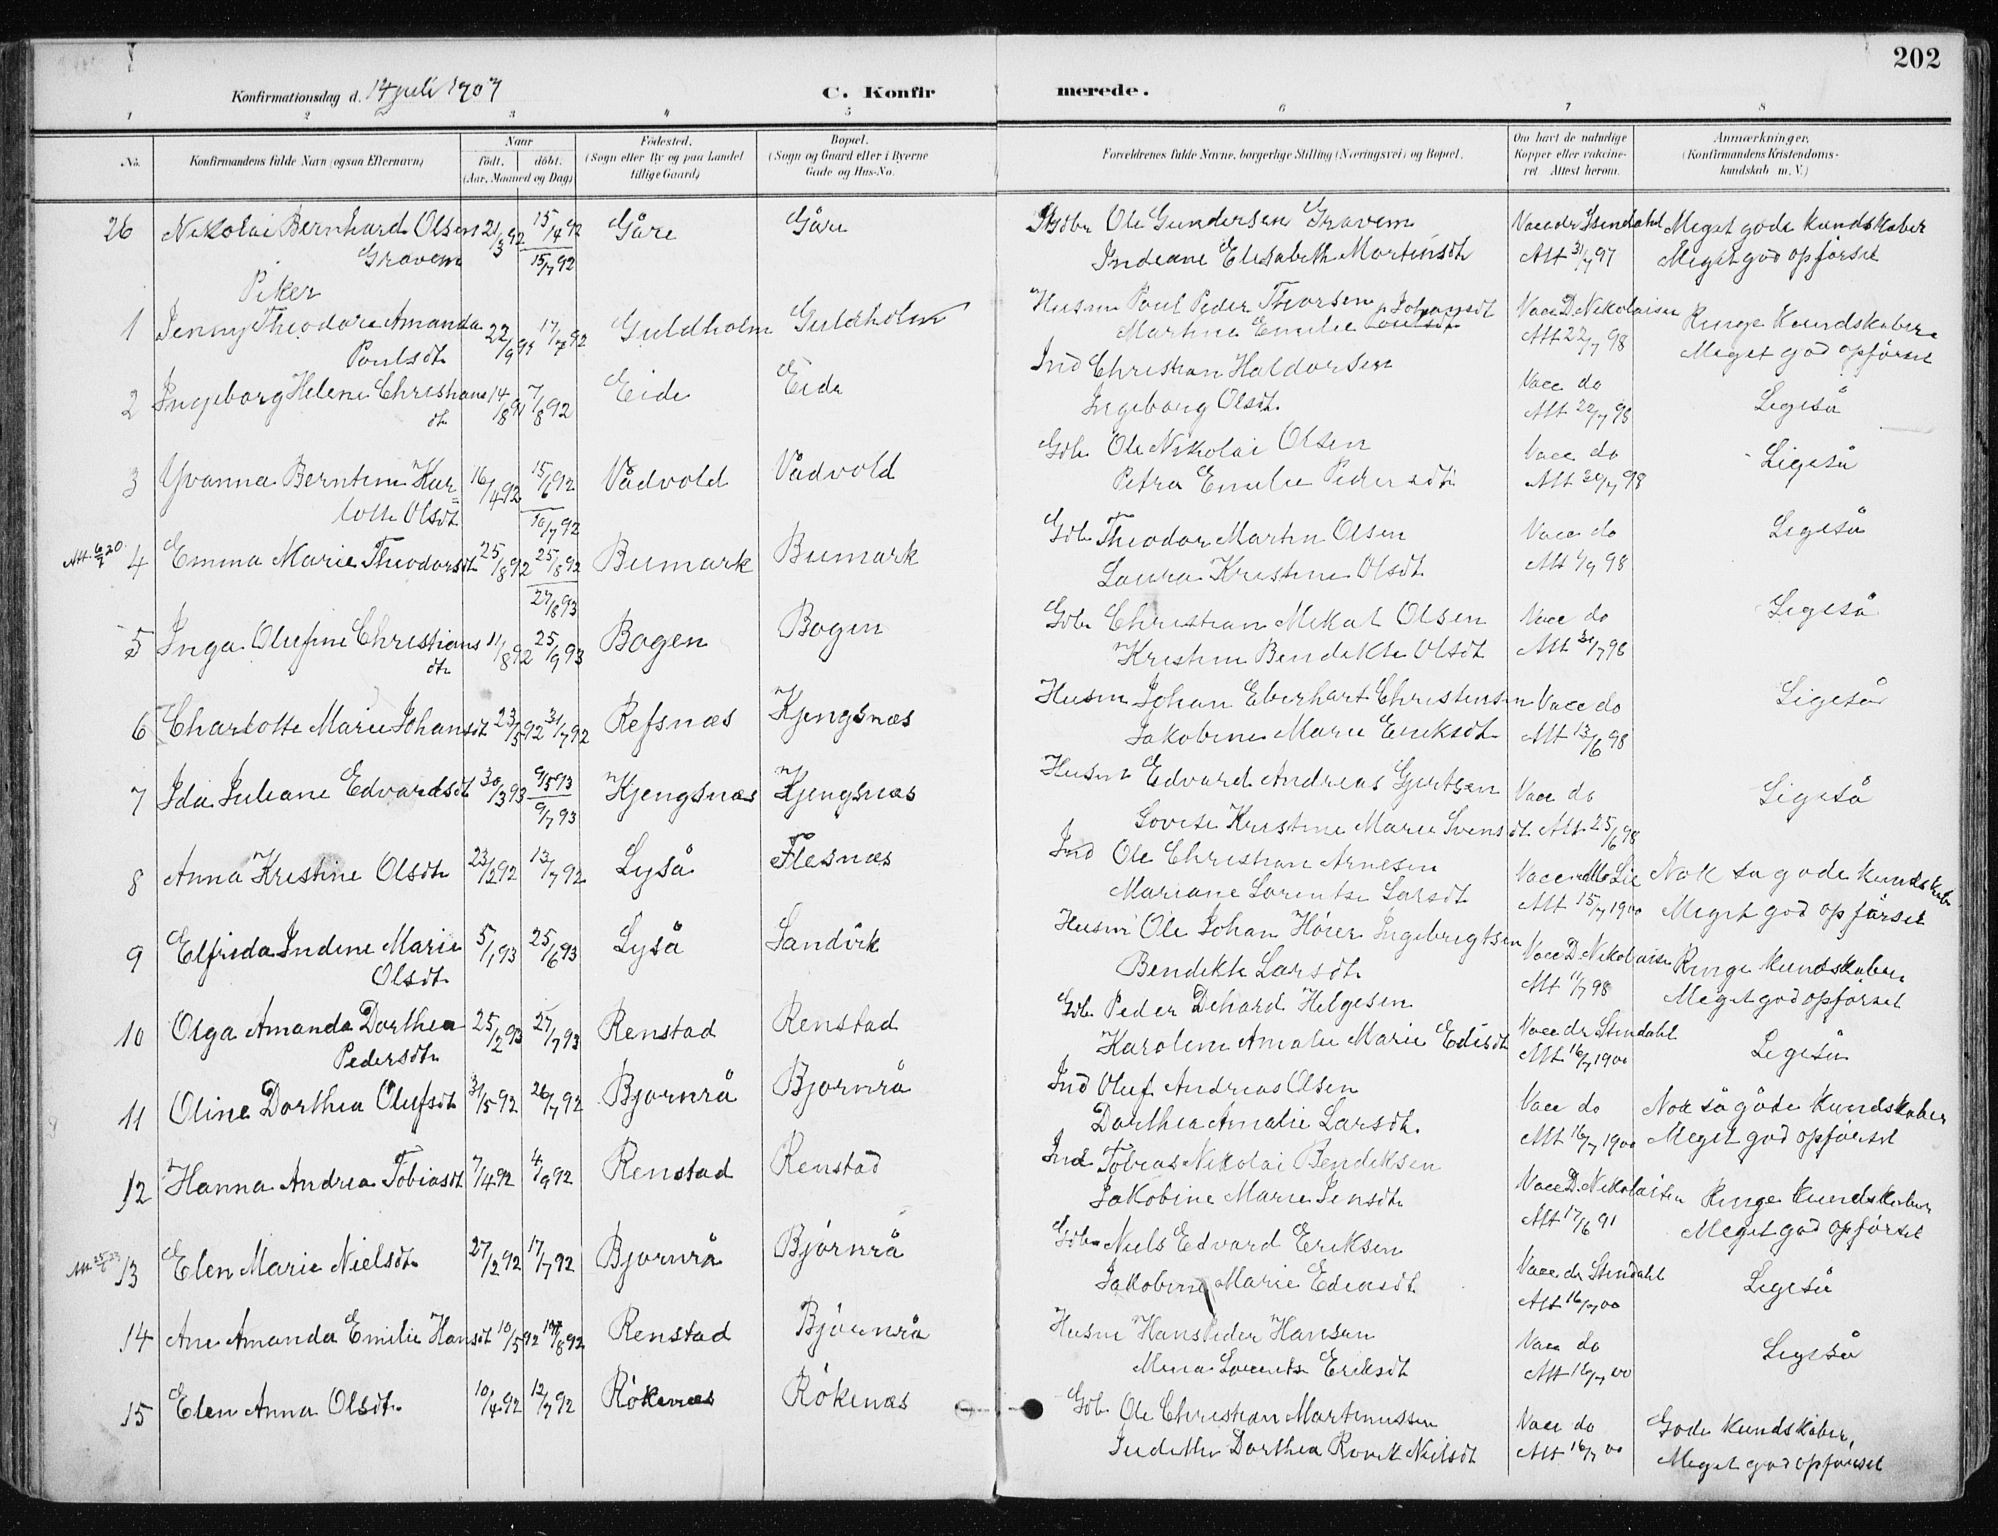 202
Konfirmationsdag d. 14 juli 1907 C. Konfirmerede.
1 2 3 4 5 6 7 8
No. Konfirmandens fulde Navn (ogsaa Efternavn) Naar født. døbt. (Aar, Maaned og Dag) Fødested. (Sogn eller By og paa Landet tillige Gaard) Bopæl. (Sogn og Gaard eller i Byerne Gade og Hus-No. Forældrenes fulde Navne, borgerlige Stilling (Næringsvei) og Bopæl. Om havt de naturlige Kopper eller vakcineret. Attest herom. Anmærkninger, (Konfirmandens Kristendomskundskab m. V.)
26 Nikolai Bernhard Olsen 21/3 92 15/4 92 Gåre Gåre Gdbr Ole Gundersen Gravem Vacc dr Stendahl Meget gode kundskaber
Gravem 15/7 92 Indiane Elisabeth Martinsdt Att 31/7 97 Meget god opførsel
Piker
1 Jenny Theodore Amanda 22/9 91 17/7 92 Guldholm Guldholm Husm Poul Peder Thorsen Vacc D. Nikolaisen Ringe Kundskaber
Poulsdt Martine Emilie Johansdt Att 22/7 98 Meget god opførsel
2 Ingeborg Helene Christians 14/8 91 7/8 92 Eide Eide Ind Christian Haldorsen Vacc do Ligeså
dt Ingeborg Olsdt. Att 22/7 98
3 Yvanna Berntine Kar- 16/4 92 15/6 92 Vådvold Vådvold Gdb Ole Nikolai Olsen Vacc do Ligeså
lotte Olsdt 10/7 92 Petra Emilie Pedersdt Att 20/7 98
Att 6/2 20 4 Emma Marie Theodorsdt 25/8 92 25/8 92 Bumark Bumark Gdb Theodor Martin Olsen Vacc do Ligeså
27/8 93 Laura Kristine Olsdt Att 1/9 98
5 Inga Olufine Christians 11/8 92 25/9 93 Bogen Bogen Gdb Christian Mikal Olsen Vacc do Ligeså
dt Kristine Bendikte Olsdt Att 31/7 98
6 Charlotte Marie Johansdt 23/5 92 31/7 92 Refsnæs Kjengsnæs Husm Johan Eberhart Christensen Vacc do Ligeså
Jakobine Marie Eriksdt Att 13/6 98
7 Ida Juliane Edvardsdt 30/3 93 9/5 93 Kjengsnæs Kjengsnæs Husm Edvard Andreas Gjertsen Vacc do Ligeså
9/7 93 Lovise Kristine Marie Svensdt Att 25/6 98
8 Anna Kristine Olsdt 23/2 92 13/7 92 Lyså Flesnæs Ind Ole Christian Arnesen Vacc Lie Nok så gode kundskaber
Mariane Lorentse Larsdt Att 15/7 1900 Meget god opførsel
9 Elfrida Indine Marie 5/1 93 25/6 93 Lyså Sandvik Husm Ole Johan Høier Ingebrigtsen Vacc D. Nikolaisen Ringe kundskaber
Olsdt Bendikte Larsdt Att 11/7 98 Meget god opførsel
10 Olga Amanda Dorthea 25/2 93 27/7 93 Renstad Renstad Gdb Peder Dehard Helgesen Vacc dr Stendahl Ligeså
Pedersdt Karoline Amalie Marie Edisdt Att 16/7 1900
11 Oline Dorthea Olufsdt 31/5 92 26/7 92 Bjornrå Bjornrå Ind Oluf Andreas Olsen Vacc do Nok så gode kundskaber
Dorthea Amalie Larsdt. Att 16/7 1900 Meget god opførsel
12 Hanna Andrea Tobiasdt 7/4 92 4/9 92 Renstad Renstad Ind Tobias Nikolai Bendiksen Vacc D. Nikolaisen Ringe kundskaber
Jakobine Marie Jensdt Att 17/6 91 Meget god opførsel
Att 25/6 23 13 Elen Marie Nielsdt 27/2 92 17/7 92 Bjornrå Bjørnrå Gdb Niels Edvard Eriksen Vacc dr Stendahl Ligeså
Jakobine Marie Ediasdt Att 16/7 00
14 Ane Amanda Emilie Hansdt 10/5 92 14/8 92 Renstad Bjørnrå Husm Hans Peder Hansen Vacc do Ligeså
Mina Lorents Eriksdt Att 16/7 00
15 Elen Anna Olsdt. 10/4 92 12/7 92 Rökenæs Rökenæs Gdb Ole Christian Martinussen Vacc do Gode kundskaber,
Judithe Dorthea Rovik Nielsdt Att 16/7 00 Meget god opførsel